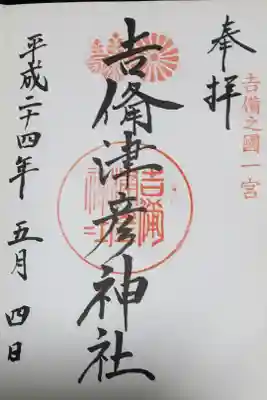 奉拝
吉備之國一宮
吉備津彦神社
平成二十四年 五月 四日